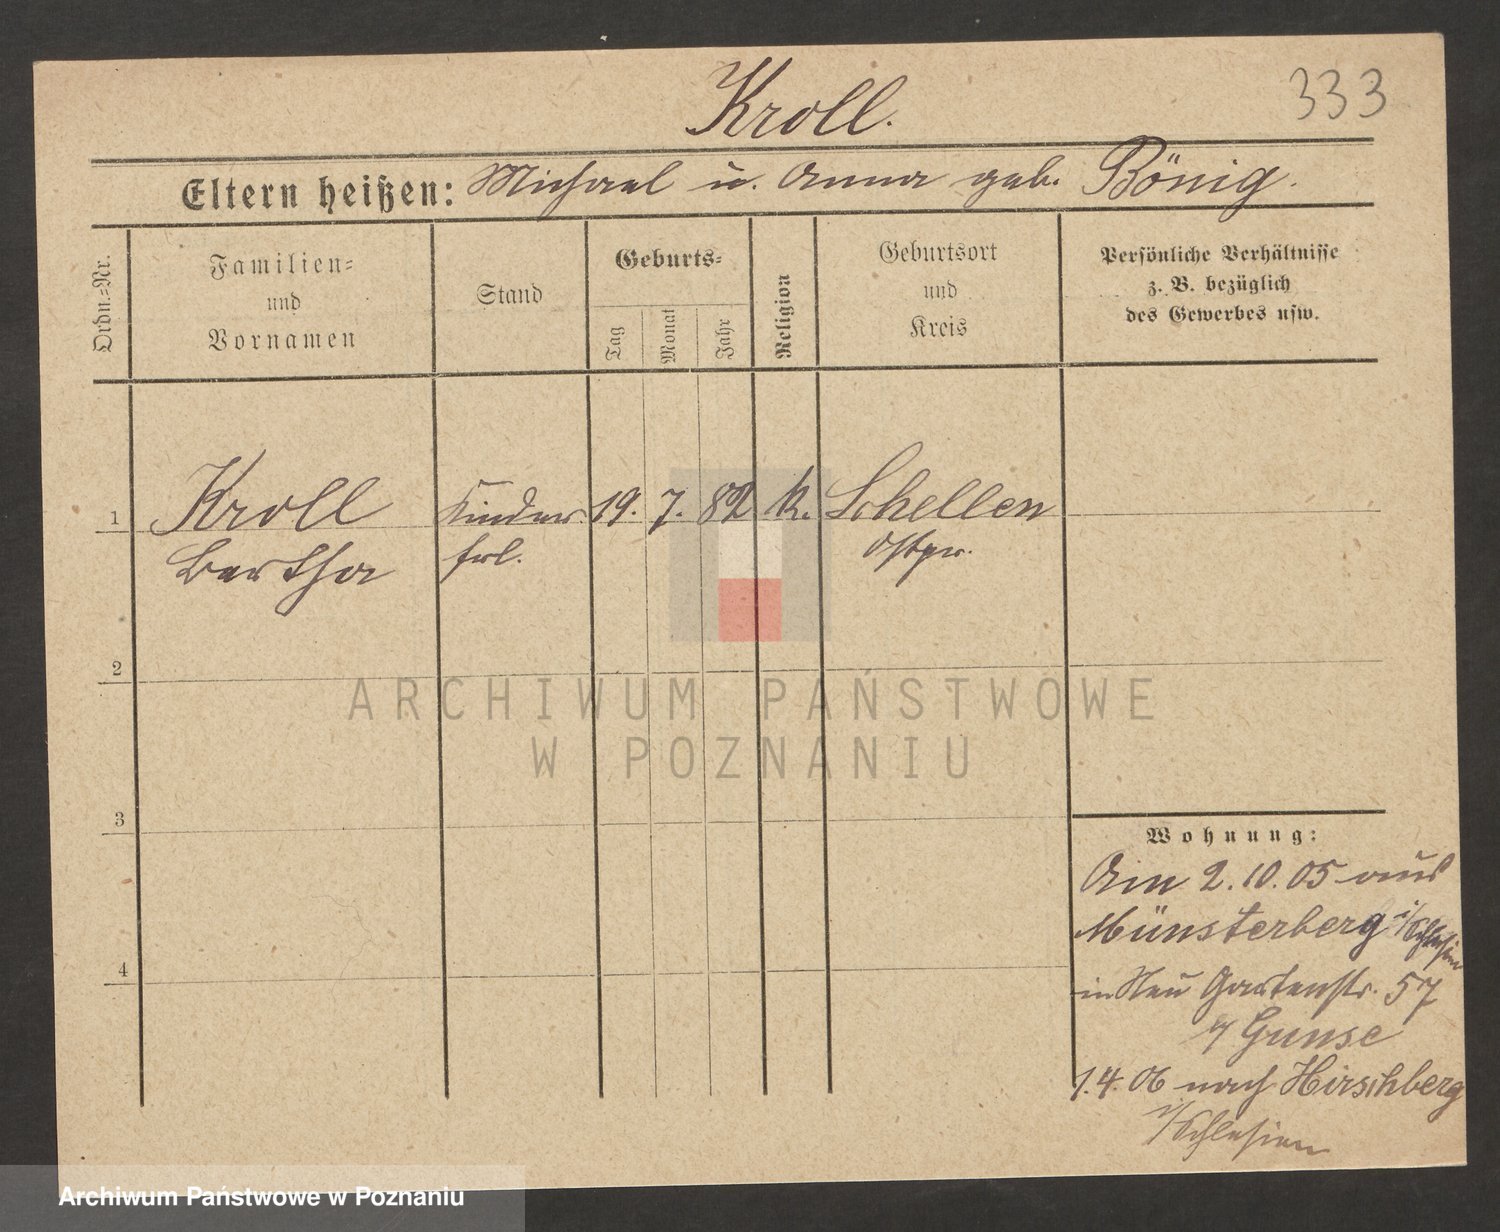 333
Kroll.
Eltern heißen: Michael u. Anna geb. Bönig.
Ordn.=Nr.
Familien=
und
Vornamen
Stand
Geburts=
Tag
Monat
Jahr
Religion
Geburtsort
und
Kreis
Persönliche Verhältnisse
z. B. bezüglich
des Gewerbes usw.
1 Kroll Kinder 19. 7. 82 k. Schellen
Bertha frl. Ostpr.
2
ARCHIWUM PAŃSTWOWE
W POZNANIU
3
Wohnung:
Am 2. 10. 05 aus
Münsterberg i/Schlesien
in Neu Gartenstr. 57
Gunse
4
1. 4. 06 nach Hirschberg
i/Schlesien
Archiwum Państwowe w Poznaniu